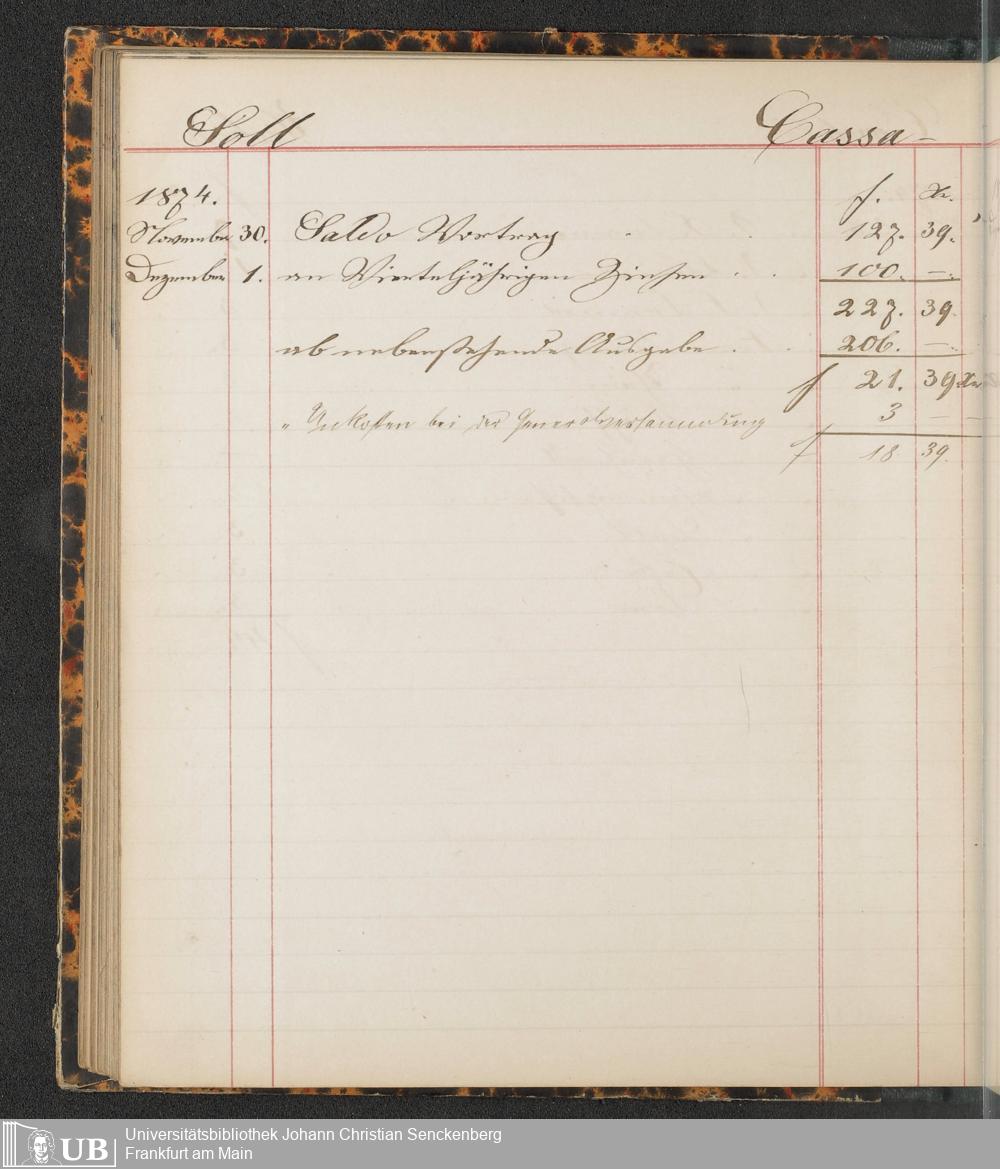 Soll Cassa-
1874. f. Xr.
November 30. Saldo Vortrag 127. 39.
Dezember 1. an Vierteljährigen Zinsen 100. —.
227. 39.
ab nebenstehende Ausgabe 206. —.
f 21. 39 Xr
" Unkosten bei der Generalversammlung 3 — —
f 18 39.
UB Universitätsbibliothek Johann Christian Senckenberg
Frankfurt am Main